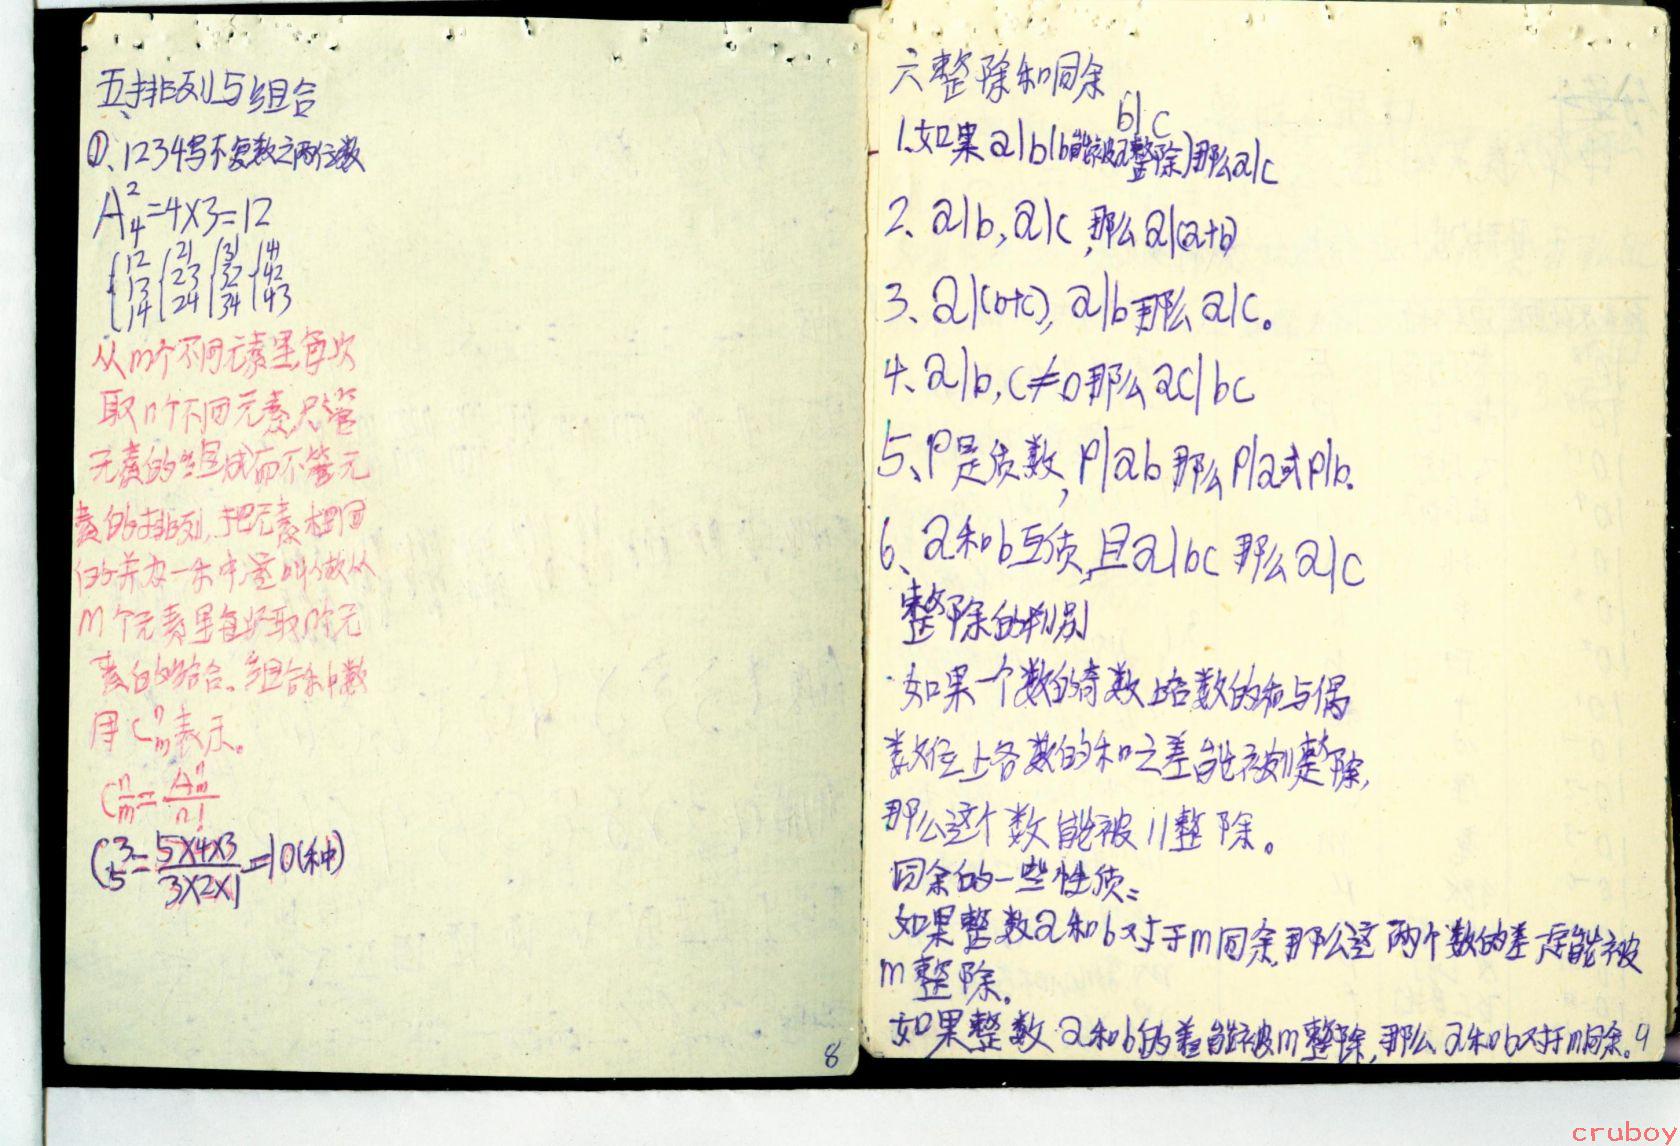 五、排列与组合
①、1234写不复数之两位数
A²₄=4×3=12
12 21 31 41
13 23 32 42
14 24 34 43
从m个不同元素里,每次
取n个不同元素,只管
元素的组成而不管元
素的排列,把元素相同
的并为一
m个元素里每次取n个元
素的组合。组合种数
用Cⁿₘ表示。
Cⁿₘ=Aⁿₘ/n!
C³₅=5×4×3/3×2×1=10(种)
8
六整除和同余
b|c
1.如果a|b(b能被a整除)那么a|c
2、a|b,a|c,那么a|(a+b)
3、a|(b+c),a|b那么a|c。
4、a|b,c≠0那么ac|bc
5、P是质数,P|ab那么P|a或P|b.
6、a和b互质,且a|bc那么a|c
整除的判别
如果一个数的奇数上各数的和与偶
数位上各数的和之差能被11整除,
那么这个数能被11整除。
同余的一些性质:
如果整数a和b对于m同余,那么这两个数的差一定能被
m整除。
如果整数a和b的差能被m整除,那么a和b对于m同余。9
cruboy